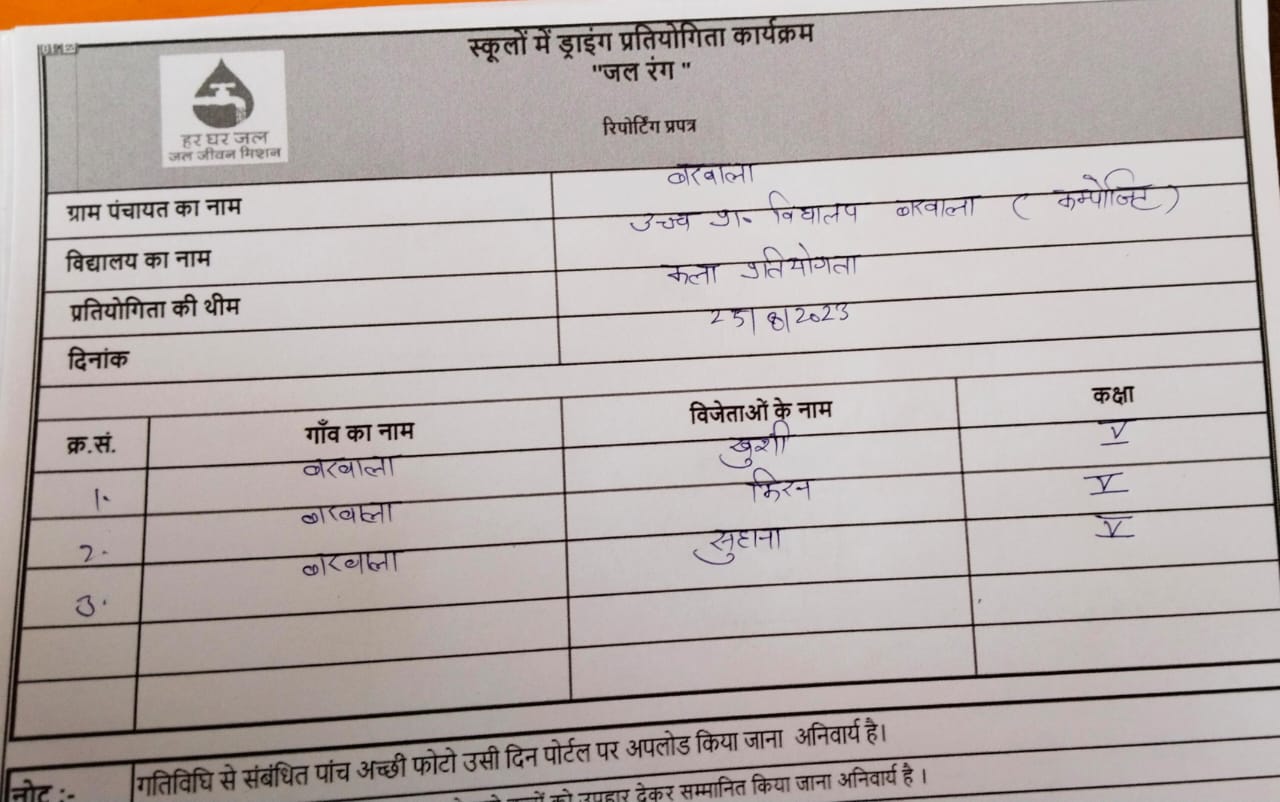 स्कूलों में ड्राइंग प्रतियोगिता कार्यक्रम
"जल रंग "
हर घर जल
जल जीवन मिशन
रिपोर्टिंग प्रपत्र
ग्राम पंचायत का नाम बरवाला
विद्यालय का नाम उच्च प्रा॰ विद्यालय बरवाला ( कम्पोजिट )
प्रतियोगिता की थीम कला प्रतियोगता
दिनांक 25/8/2023
क्र.सं. गाँव का नाम विजेताओं के नाम कक्षा
1. बरवाला खुशी V
2. बरवाला किरन V
3. बरवाला सुहाना V
नोट :- गतिविधि से संबंधित पांच अच्छी फोटो उसी दिन पोर्टल पर अपलोड किया जाना अनिवार्य है।
को उपहार देकर सम्मानित किया जाना अनिवार्य है ।